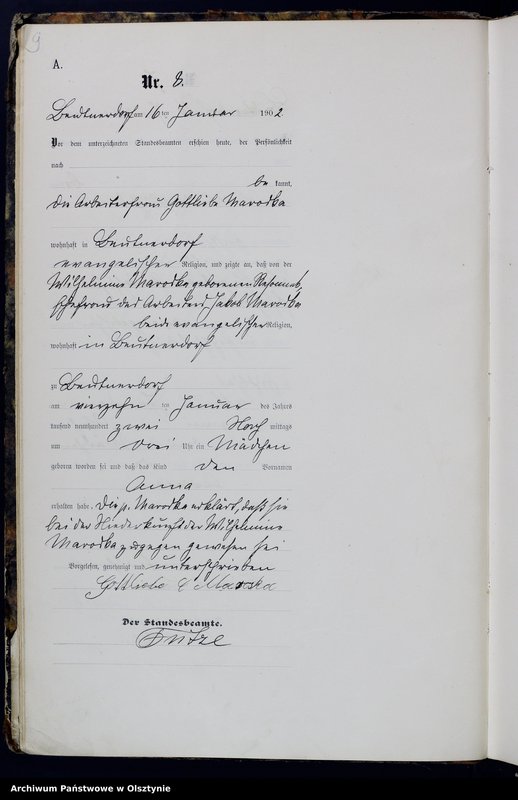 9
A.
Nr. 8.
Beutnerdorf am 16 ten Januar 1902.
Vor dem unterzeichneten Standesbeamten erschien heute, der Persönlichkeit
nach
be kannt,
die Arbeiterfrau Gottliebe Marodka
wohnhaft in Beutnerdorf
evangelischer Religion, und zeigte an, daß von der
Wilhelmine Marodka geborenen
Ehefrau des Arbeiters Jakob Marodka
beide evangelischer Religion,
wohnhaft in Beutnerdorf
zu Beutnerdorf
am vierzehn ten Januar des Jahres
tausend neunhundert zwei Nach mittags
um drei Uhr ein Mädchen
geboren worden sei und daß das Kind den Vornamen
Anna
erhalten habe. Die p. Marodka erklärt, daß sie
bei der Niederkunft der Wilhelmine
Marodka zugegen gewesen sei
Vorgelesen, genehmigt und unterschrieben
Gottliebe
Der Standesbeamte.
Archiwum Państwowe w Olsztynie